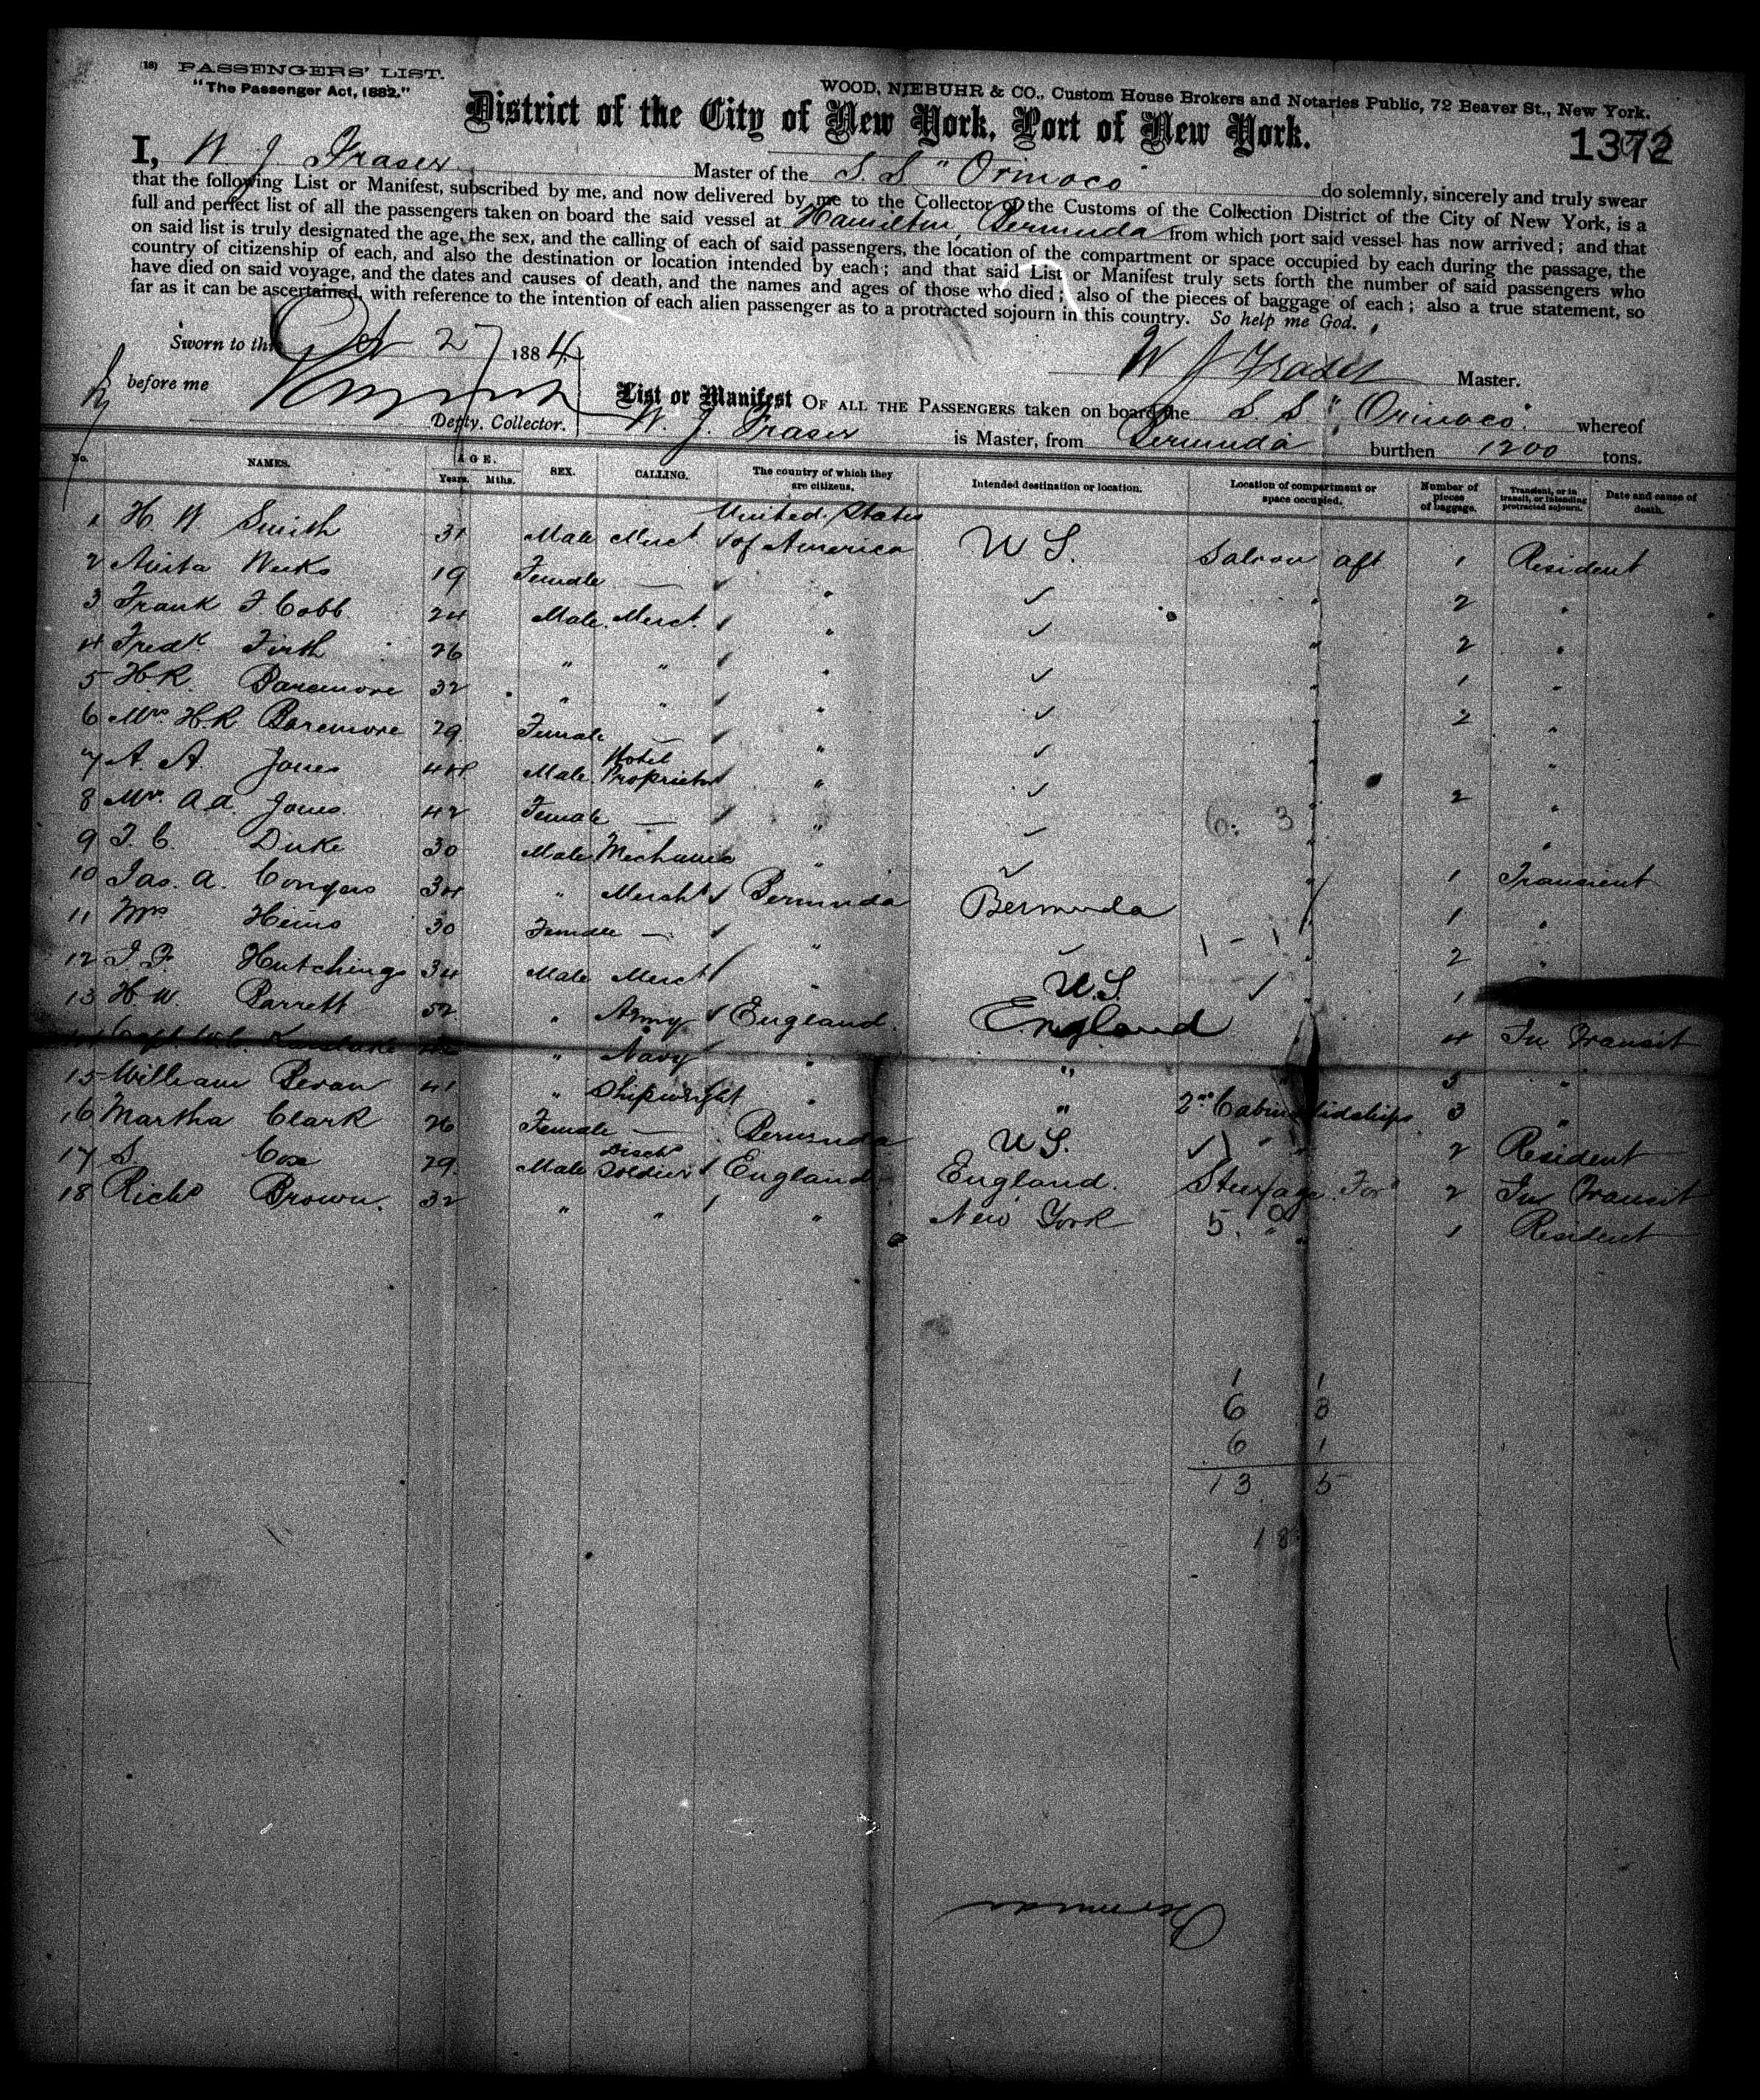 (18) PASSENGERS' LIST.
"The Passenger Act, 1882."
WOOD, NIEBUHR & CO., Custom House Brokers and Notaries Public, 72 Beaver St., New York.
District of the City of New York, Port of New York.
1372
I, W. J. Fraser Master of the S.S "Orinoco" do solemnly, sincerely and truly swear
that the following List or Manifest, subscribed by me, and now delivered by me to the Collector of the Customs of the Collection District of the City of New York, is a
full and perfect list of all the passengers taken on board the said vessel at Hamilton, Bermuda from which port said vessel has now arrived; and that
on said list is truly designated the age, the sex, and the calling of each of said passengers, the location of the compartment or space occupied by each during the passage, the
country of citizenship of each, and also the destination or location intended by each; and that said List or Manifest truly sets forth the number of said passengers who
have died on said voyage, and the dates and causes of death, and the names and ages of those who died; also of the pieces of baggage of each; also a true statement, so
far as it can be ascertained, with reference to the intention of each alien passenger as to a protracted sojourn in this country. So help me God.
Sworn to this Oct 27 1884
W J Fraser Master.
before me
Depty. Collector.
List or Manifest OF ALL THE PASSENGERS taken on board the S. S. "Orinoco" whereof
W. J. Fraser is Master, from Bermuda burthen 1200 tons.
No. NAMES. AGE. Years. Mths. SEX. CALLING. The country of which they are citizens. Intended destination or location. Location of compartment or space occupied. Number of pieces of baggage. Transient, or in transit, or intending protracted sojourn. Date and cause of death.
1 H W Smith 31 Male Merct United States of America U S. Saloon aft 1 Resident
2 Weeks 19 Female — " " 2 "
3 Frank F. Cobb 24 Male. Merct. " " 2 "
4 Fredk Firth 26 " " " " 1 "
5 H.R. Baremore 32 " " " " 2 "
6 Mrs H R Baremore 29 Female — " " "
7 A. A. Jones 44 Male. Hotel Proprietor " " 2 "
8 Mrs. A A Jones. 42 Female — " 6: 3 " "
9 Duke 30 Male Mechanic " " 1 Transient
10 Jas. A. Conyers 34 " Mercht Bermuda Bermuda 1 "
11 Mrs 30 Female — " 1 - 1 " 2 "
12 Hutchings 34 Male Merct " U.S. " 1
13 H. W. Barrett 52 " Army England. England " 4 In Transit
14 Capt " Navy " " " 5 "
15 William Bevan 41 " Shipwright " " 2nd Cabin Midships 3 "
16 Martha Clark 26 Female — Bermuda U S. " " 2 Resident
17 S. Cox 29 Male Disch Soldier England England. Steerage For 2 In Transit
18 Richd Brown. 32 " " " New York 5. " " 1 Resident
1 1
6 3
6 1
13 5
18
Bermuda